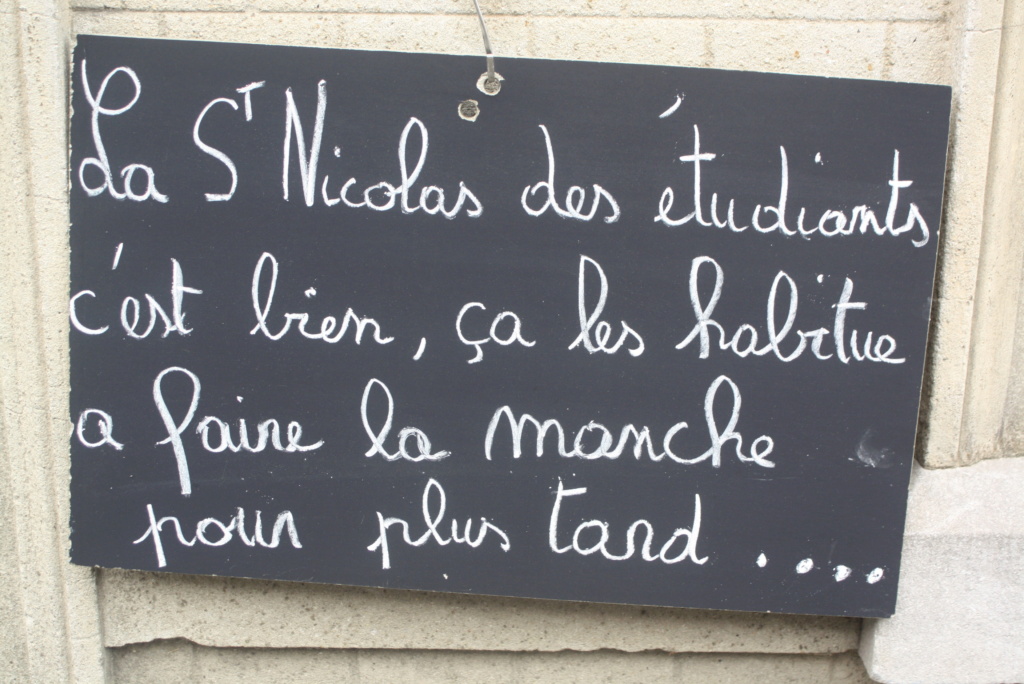 La ST Nicolas des étudiants
c'est bien, ça les habitue
a faire la manche
pour plus tard ....